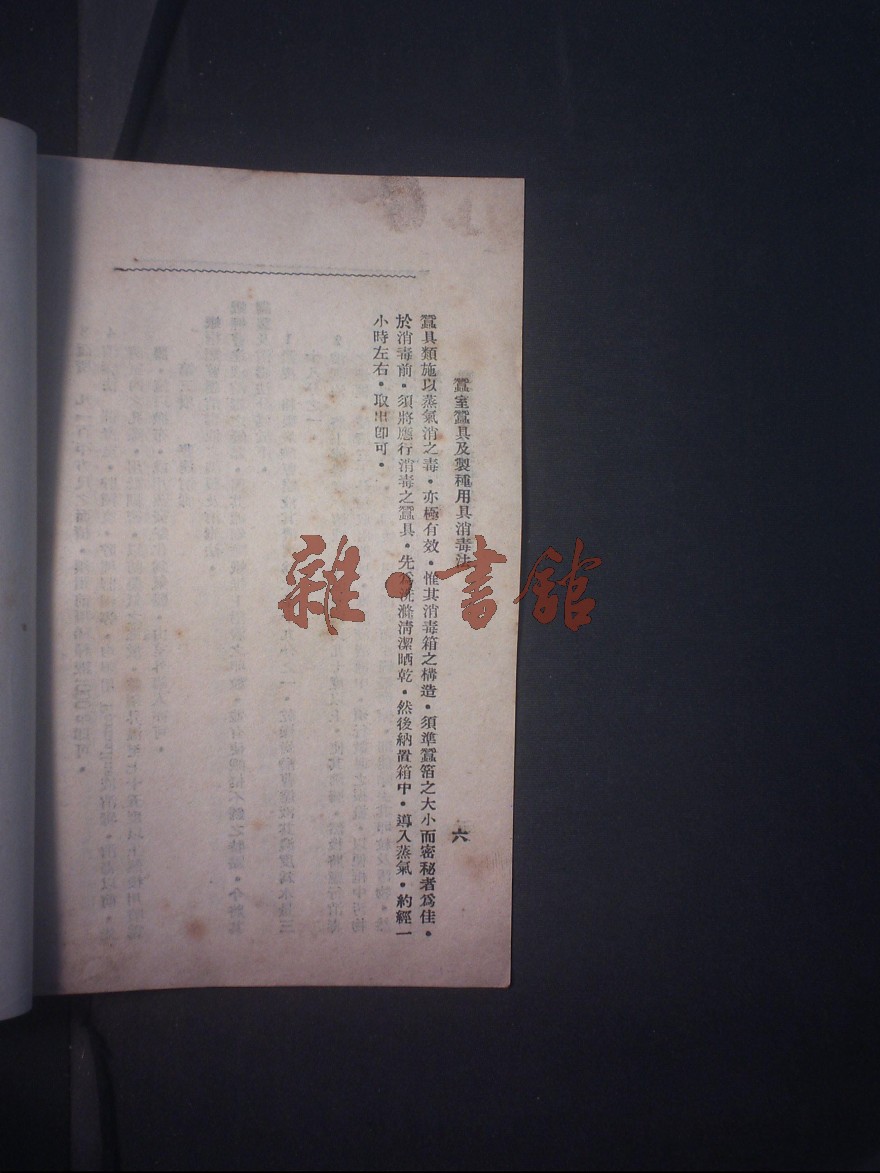 蠶室蠶具及製種用具消毒法
六
蠶具類施以蒸氣消之毒・亦極有效・惟其消毒箱之構造・須準蠶箔之大小而密秘者爲佳・
於消毒前・須將應行消毒之蠶具・先爲洗滌淸潔晒乾・然後納置箱中・導入蒸氣・約經一
小時左右・取出卽可・
雜・書館